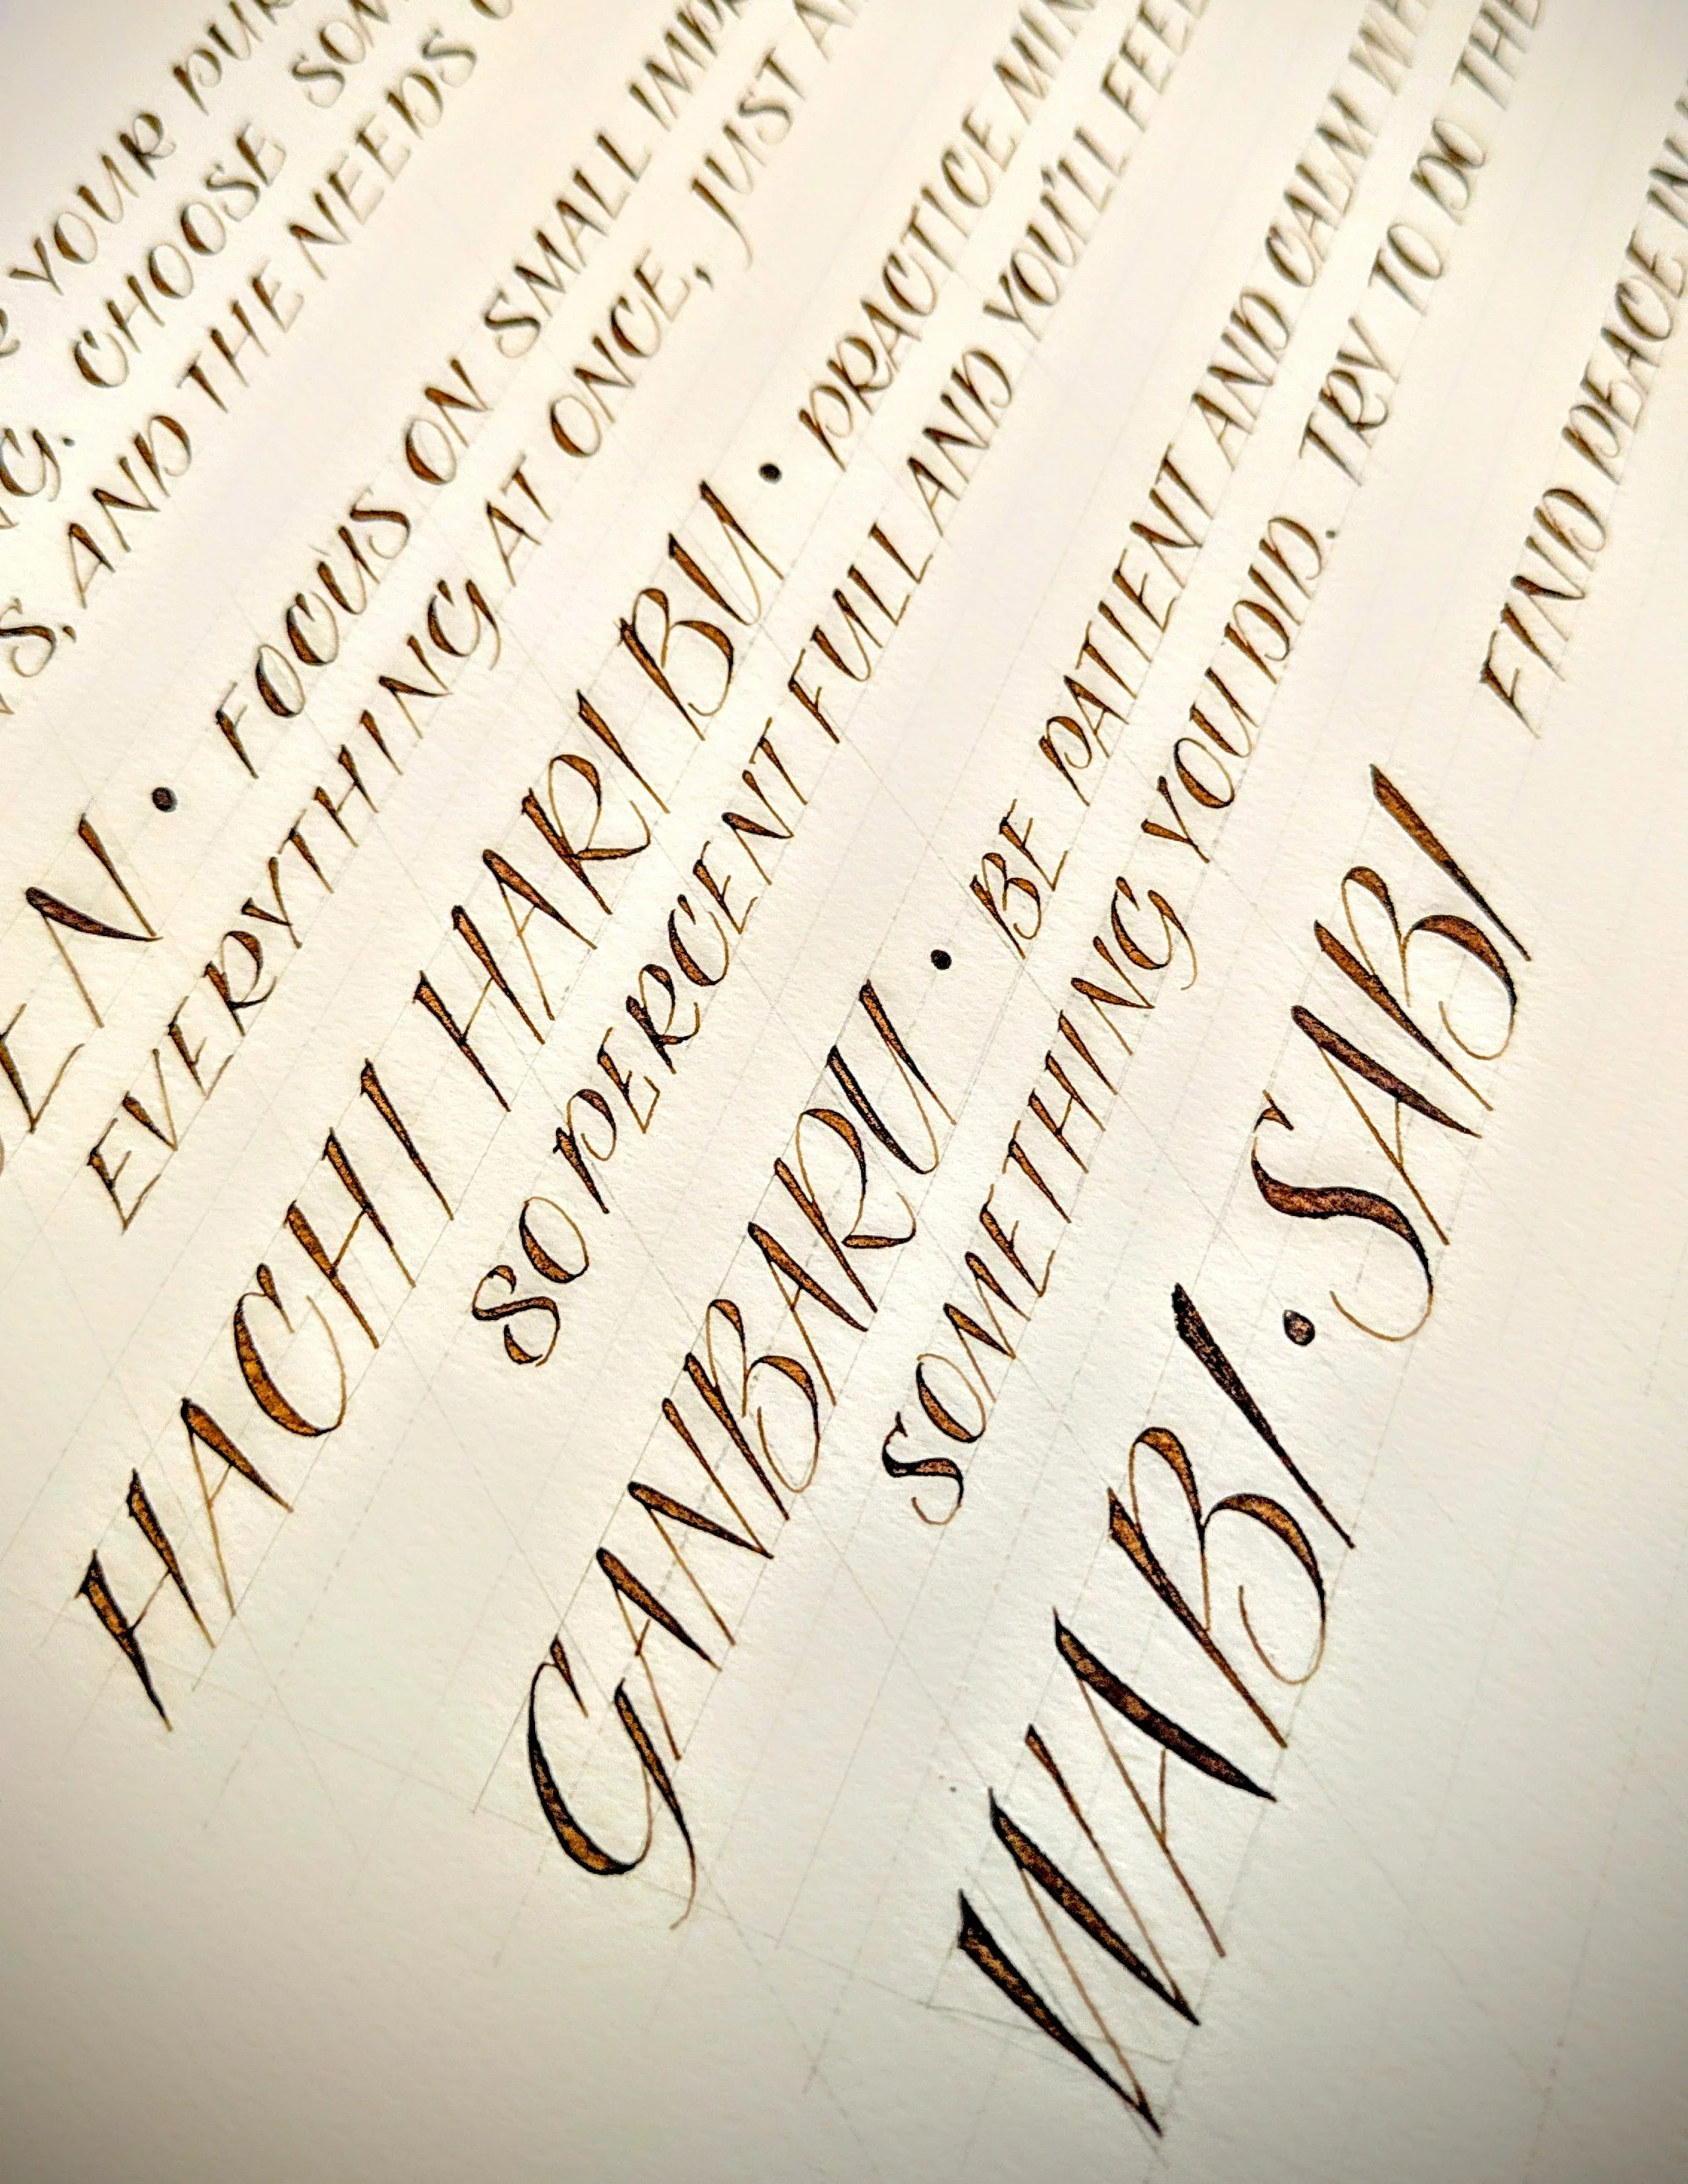 YOUR PUR
G. CHOOSE SOM
S, AND THE NEEDS
EN • FOCUS ON SMALL IMPR
EVERYTHING AT ONCE, JUST A
HACHI HARI BU • PRACTICE MIN
SO PERCENT FULL AND YOU'LL FEEL
GANBARU • BE PATIENT AND CALM WH
SOMETHING YOU DID. TRY TO DO THE
WABI • SABI FIND PEACE IN